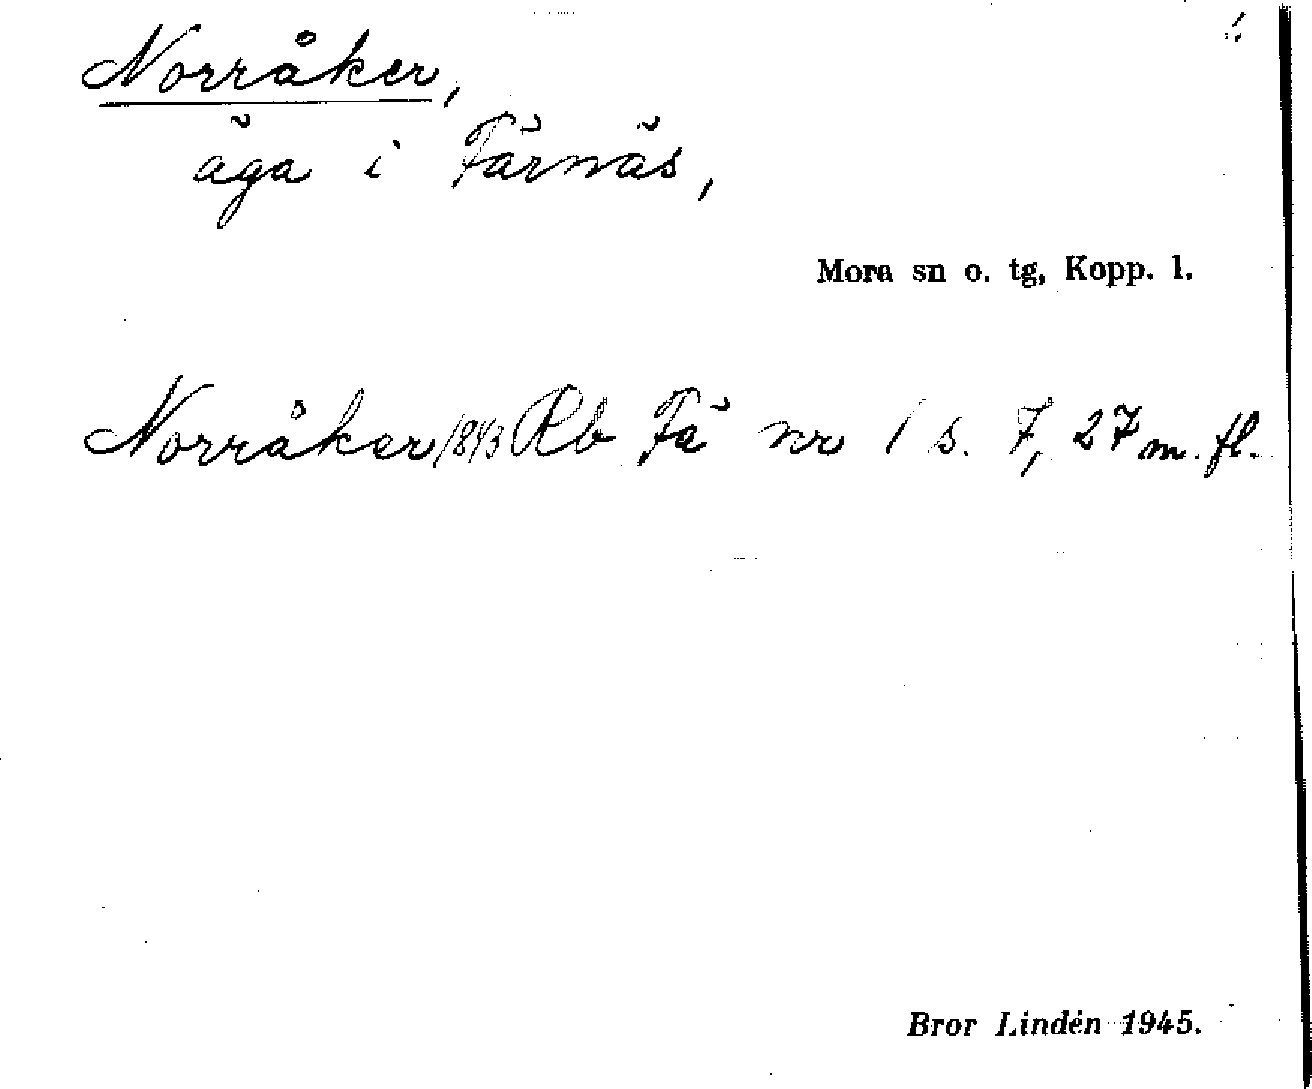 Norråker,
äga i Färnäs,
Mora sn o. tg, Kopp. l.
Norråker 1843 Rb Fä nr 1 s. 7, 27 m. fl.
Bror Lindén 1945.